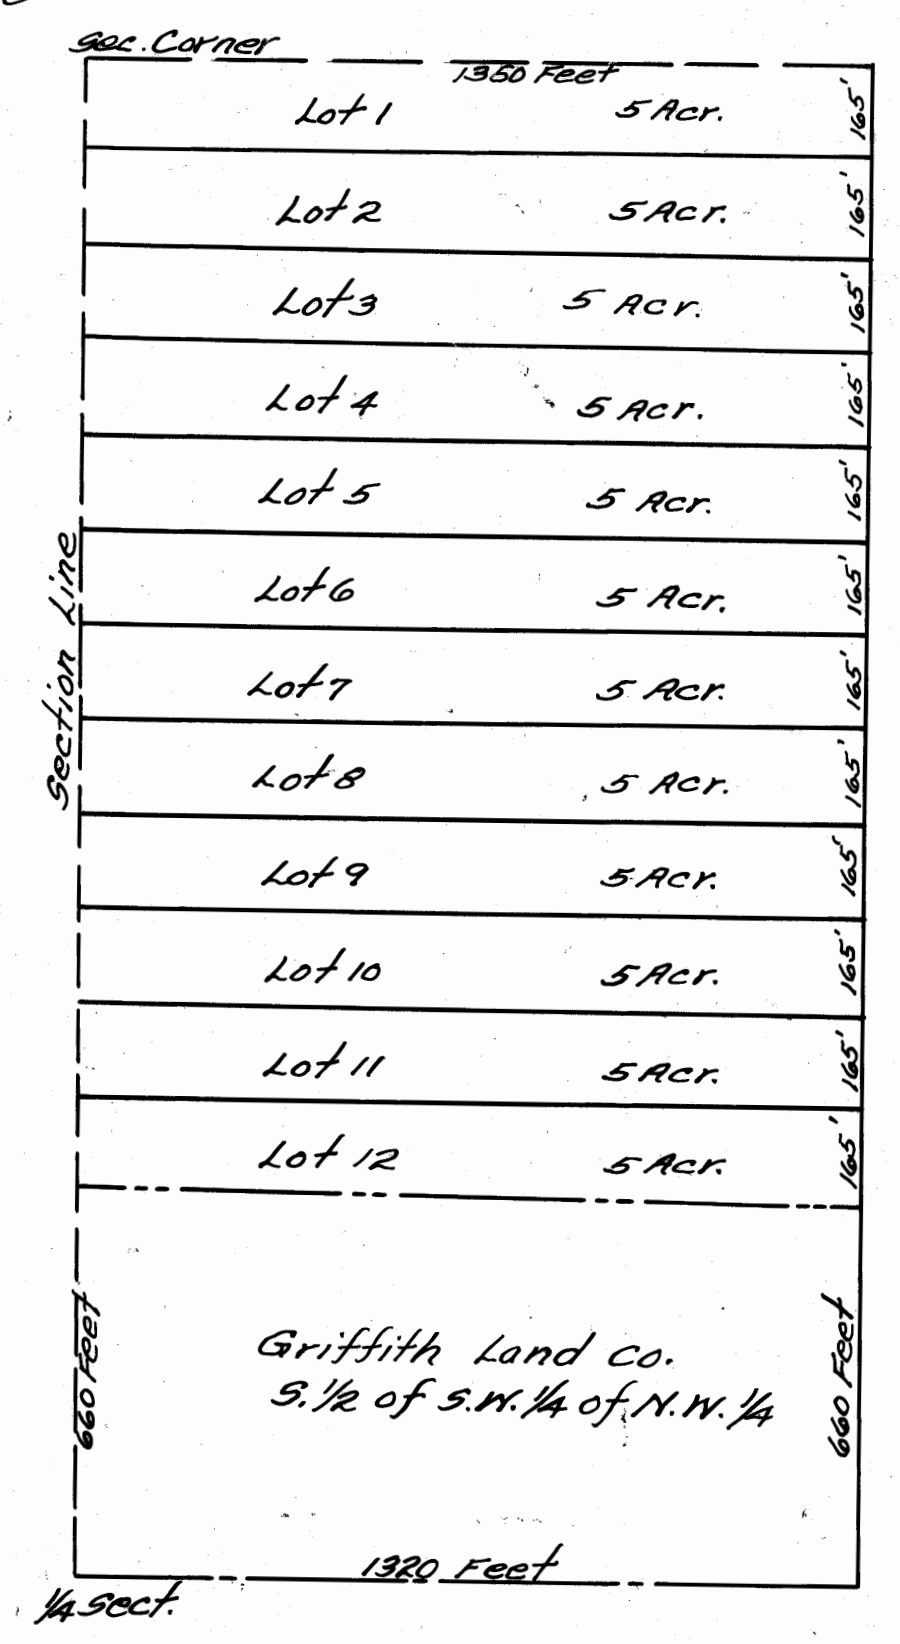 Sec. Corner
1350 Feet
Lot 1 5 Acr. 165'
Lot 2 5 Acr. 165'
Lot 3 5 Acr. 165'
Lot 4 5 Acr. 165'
Lot 5 5 Acr. 165'
Lot 6 5 Acr. 165'
Lot 7 5 Acr. 165'
Lot 8 5 Acr. 165'
Lot 9 5 Acr. 165'
Lot 10 5 Acr. 165'
Lot 11 5 Acr. 165'
Lot 12 5 Acr. 165'
Section Line
660 Feet
Griffith Land Co.
S. 1/2 of S.W. 1/4 of N.W. 1/4
660 Feet
1320 Feet
1/4 Sect.